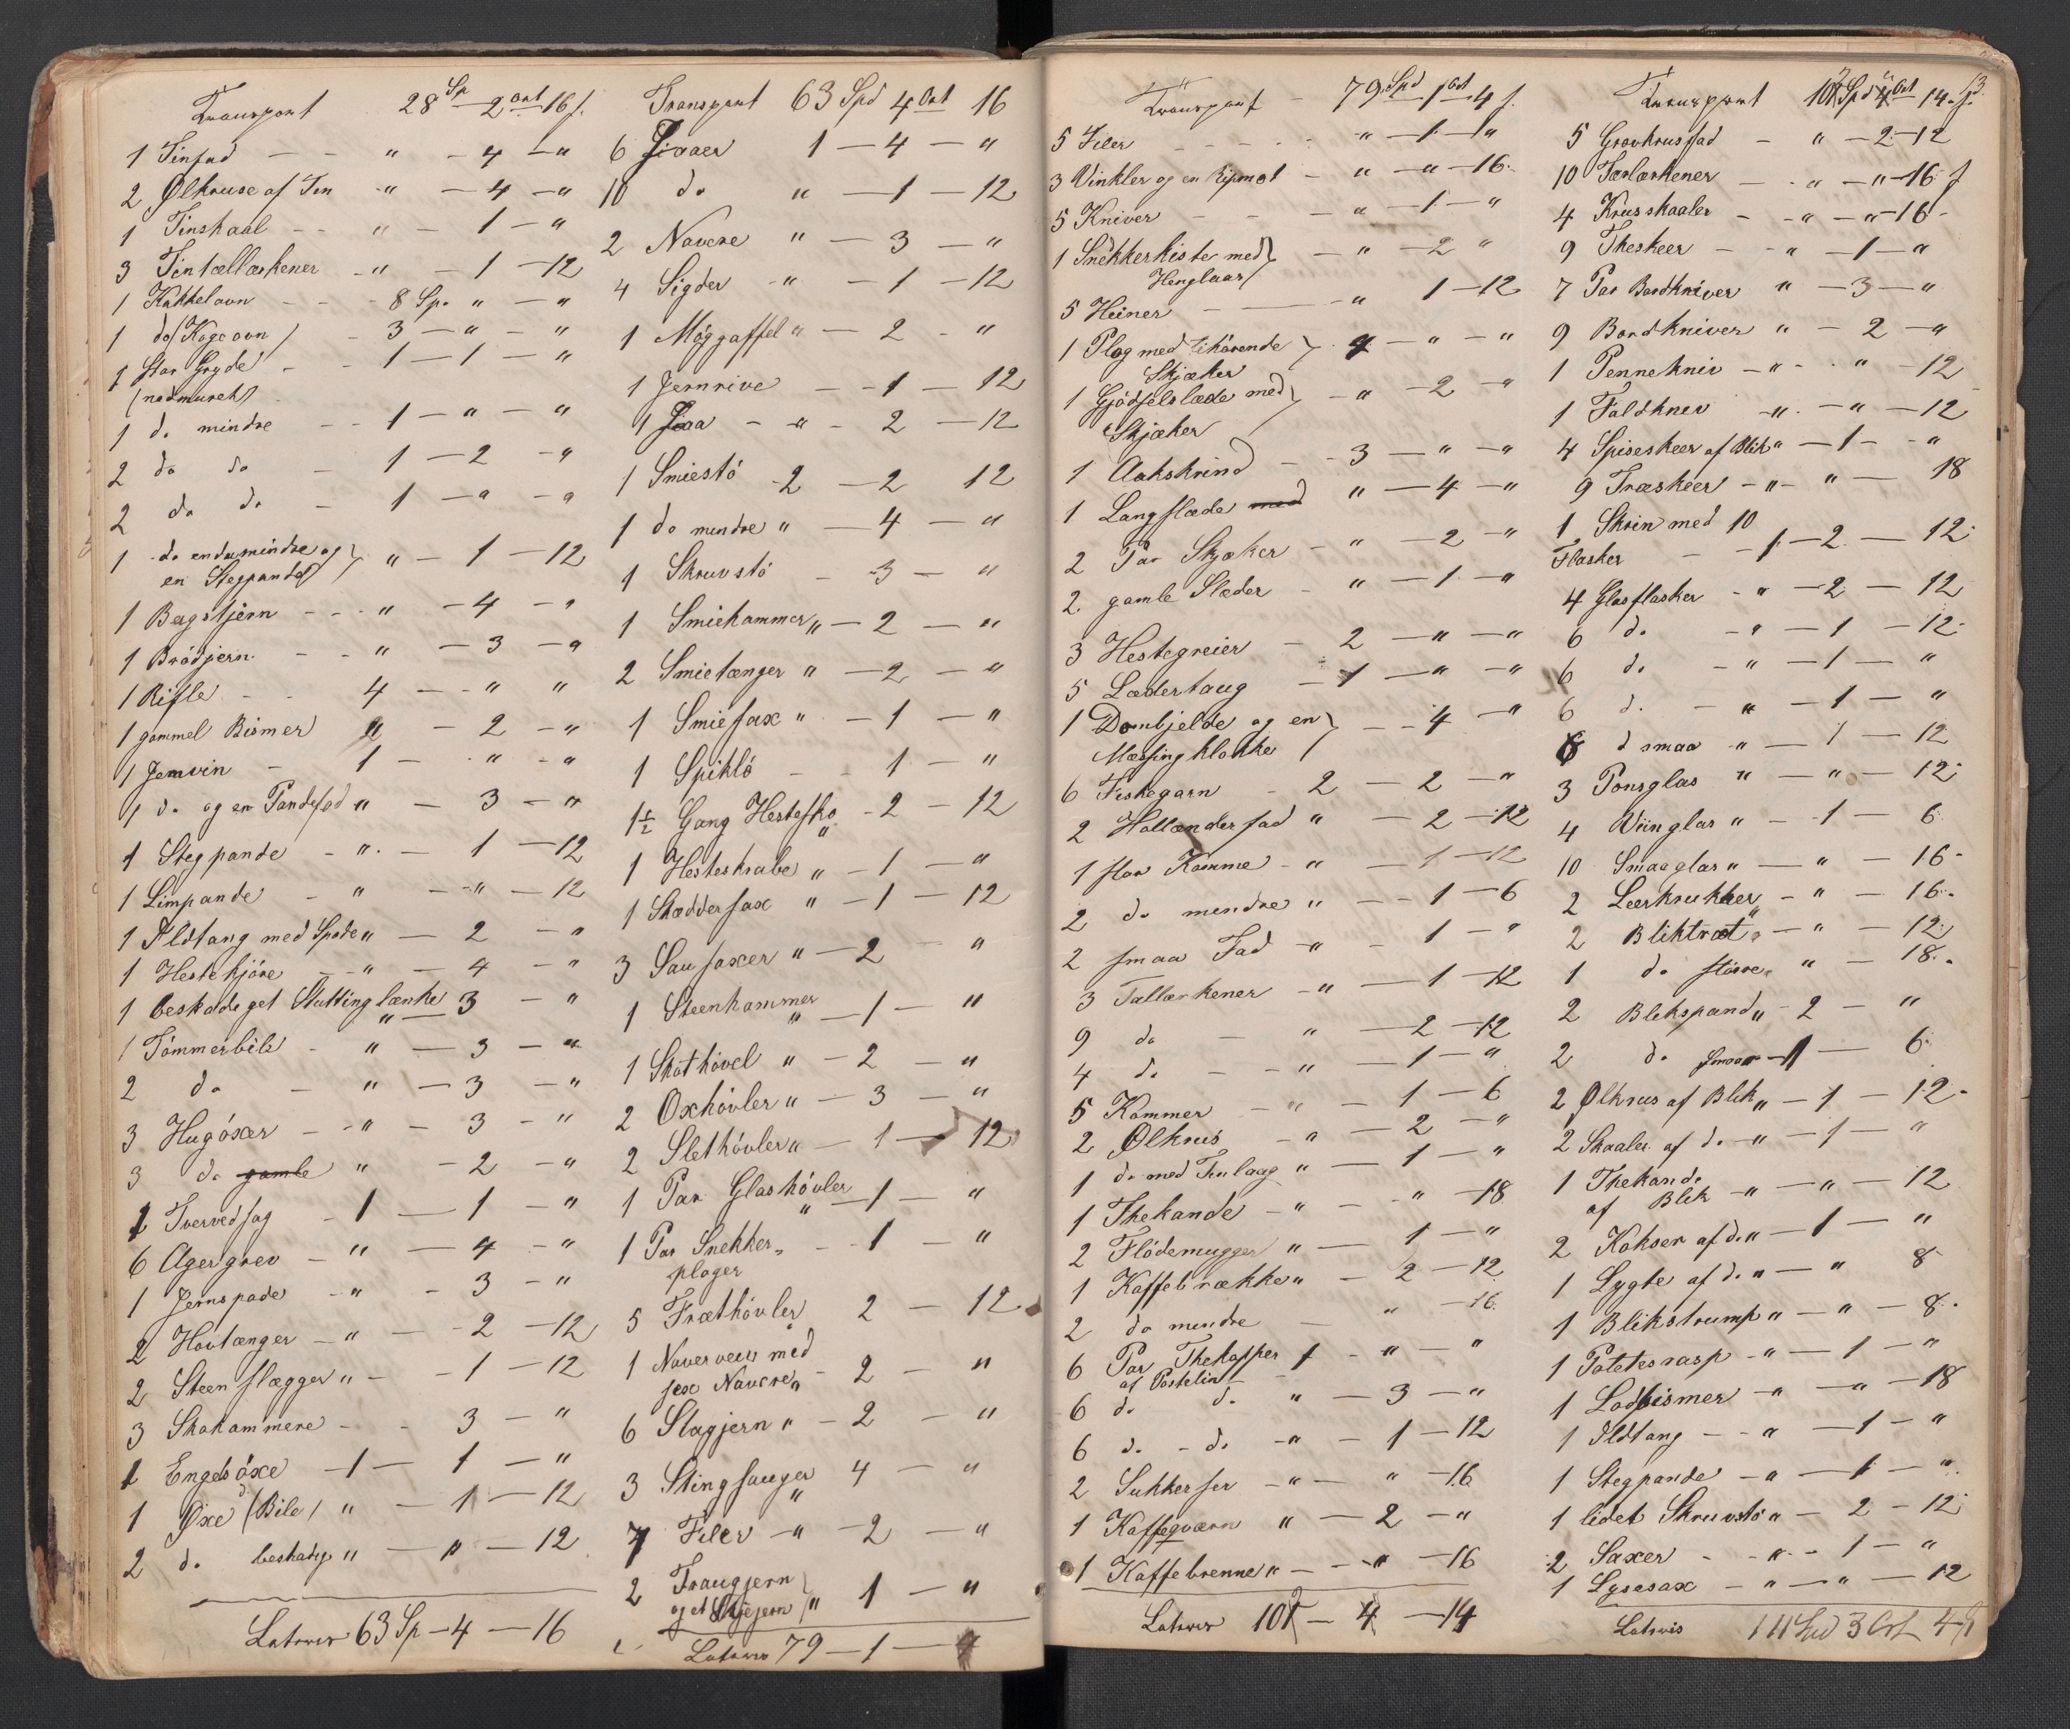 Transport 28 Sp 2 ort 16 s.
1 Tinfad - - " - 4 - "
2 Ølkruse af Tin - " - 4 - "
1 Tinskaal - - " - 1 - "
3 Tintællærkener - " - 1 - 12
1 Kakkelovn - - - 8 Sp. " - "
1 do (Kogeovn) - 3 - " - "
1 stor Gryde - - 1 - 1 - "
(nedmuret)
1 do mindre - - 1 - " - "
2 do do - 1 - 2 - "
2 do do - 1 - " - "
1 do endnu mindre og
en Stegpande " - 1 - 12
1 Bagstjern - - - " - 4 - "
1 Brødjern - - " - 3 - "
1 Rifle - - 4 - " - "
1 gammel Bismer " - 2 - "
1 Jernvin - 1 - " - "
1 do og en Pandefod " - 3 - "
1 Stegpande - " - 1 - 12
1 Limpande - " - " - 12
1 Ildtang med Spade " - 2 - "
1 Hestekjøre - " - 4 - "
1 beskadeget Stuttinglænke " 3 - "
1 Tømmerbile - " - 3 - "
2 do - " - 3 - "
3 Hugøxer - - " - 3 - "
3 do gamle " - 2 - "
1 Tvervedsag - 1 - 1 - "
6 Agergrev - " - 4 - "
1 Jernspade - " - 3 - "
2 Hovtænger - " - 2 - 12
2 Steenslægger " - 1 - 12
3 Skohammere - - 3 - "
1 Engelsøxe - 1 - 1 - "
1 Øxe (Bile) " - 1 - 12
2 do beskadig " - " - 12
Latervis 63 Sp - 4 - 16
Transport 63 Spd 4 Ort 16
6 Ljaaer 1 - 4 - "
10 do " - 1 - 12
2 Navere " - 3 - "
4 Sigder - " - 1 - 12
1 Møggaffel " - 2 - "
1 Jernrive - - 1 - 12
1 Ljaa - " - 2 - 12
1 Smiestö 2 - 2 12
1 do mindre " - 4 - "
1 Skruvstö - 3 - "
1 Smiehammer " - 2 - "
2 Smietænger " - 2 - "
1 Smiesax " - 1 - "
1 Spiklö - - 1 - "
1½ Gang Hestesko " - 2 - 12
1 Hesteskrabe " - 1 - "
1 Skæddersax " - 1 - 12
3 Sausaxer " - 2 - "
1 Steenhammer " - 1 - "
1 Skøthövel " - 2 - "
2 Oxhövler " - 3 - "
2 Slethövler " - 1 - 12
1 Par Glashövler " - 1 - "
1 Par Snekker- - 1 - "
ploger
5 Fræthövler 2 - 12
1 Naververv med
sex Navere " - 2 - "
6 Slagjern " - 2 - "
3 Stingsauger " 4 - "
7 Filer - " - 2 - "
2 Traugjern
og et Skjejern " 1 - "
Latervis 79 - 1 - 4
Transport - 79 Spd 1 Ort 4 s.
5 Filer - - - " - 1 - "
3 Vinkler og en Ripmot - " - " - 16
5 Kniver - - - " - 1 - "
1 Snekkerkiste med - " - 2 "
Henglaas
5 Heiner - - " 1 - 12
1 Plog med tilhörende 4 - " - "
Skjæker
1 Gjödselslæde med - " - 2 - "
Skjæker
1 Aakskrind - - 3 - " - "
1 Langslæde med " - 4 - "
2 Par Skjæker - " - 2 - "
2 gamle Slæder - " - 1 - "
3 Hestegreier - 2 - " - "
5 Lædertaug - 1 - " - "
1 Dombjelde og en - - 4 - "
Mæssingklokke
6 Fiskegarn - 2 - 2 - "
2 Hollænderfad " - 2 - 12
1 stor Komme - " - 1 - 12
2 do mindre " - - 1 - 6
2 smaa Fad - " - 1 - "
3 Tallærkener - " - 1 - 12
9 do - " - 2 - 12
4 do - - " - 1 - "
5 Kommer - " - 1 - 6
2 Ølkrus - " - 2 - "
1 do med Tinlaag " - 1 - "
1 Thekande - " - " - 18
2 Flödemugger " - 1 - "
1 Kaffebrække " - 2 - 12
2 do mindre - " - 16
6 Par Thekopper 1 - " - "
af Postelin
6 do do " - 3 - "
6 do - do - " - 1 - 12
2 Sukkerser - " - " - 16
1 Kaffeqværn " - 2 - "
1 Kaffebrenne " - - " - 16
Latervis 102 - 4 - 14
Transport 102 Spd 4 Ort 14 s. 13.
5 Grovkrusfad - " - 2 - 12
10 Tærlærkener - " - " - 16 s
4 Krusskaaler - - " - " - 16 -
9 Theskeer - - " - 1 - "
7 Par Bordkniver " - 3 - "
9 Bordkniver " - 2 - "
1 Pennekniv - " - " - 12
1 Foldkniv - " - " - 12
4 Spiseskeer af Blik " - 1 - "
9 Træskeer - " - " - 18
1 Skrin med 10
Flasker - - 1 - 2 - 12
4 Glasflasker - " - 2 - 12
6 do - " - 1 - 12
6 do - " - 1 - "
6 do - " - 1 - "
6 d smaa " - 1 - 12
3 Ponsglas " - " - 12
4 Viinglas " - 1 - 6
10 Smaaglas " - " - 16 -
2 Leerkrukker - " - 16 -
2 Bliktræt " - " - 12
1 do större " - 18 -
2 Blikspand " - 2 - "
2 do smaa - 1 - 6
2 Ølkrus af Blik " - 1 - 12 -
2 Skaaler af do - " - 1 - "
1 Thekande
af Blik - " - " - 12
2 Kokser af do " - 1 - "
1 Lygte af do " - " 8
1 Blikstrump " - " - 8 -
1 Potetesrasp - " - 1 - "
1 Lodbismer - " - " - 18
1 Ildtang - - " - 1 - "
1 Stegpande - " - 1 - "
1 lidet Skruvstö " - 2 - 12
2 Saxer - - " - 1 - "
1 Lysesax - " - " - 12
Latervis 111 Spd 3 Ort 4 s